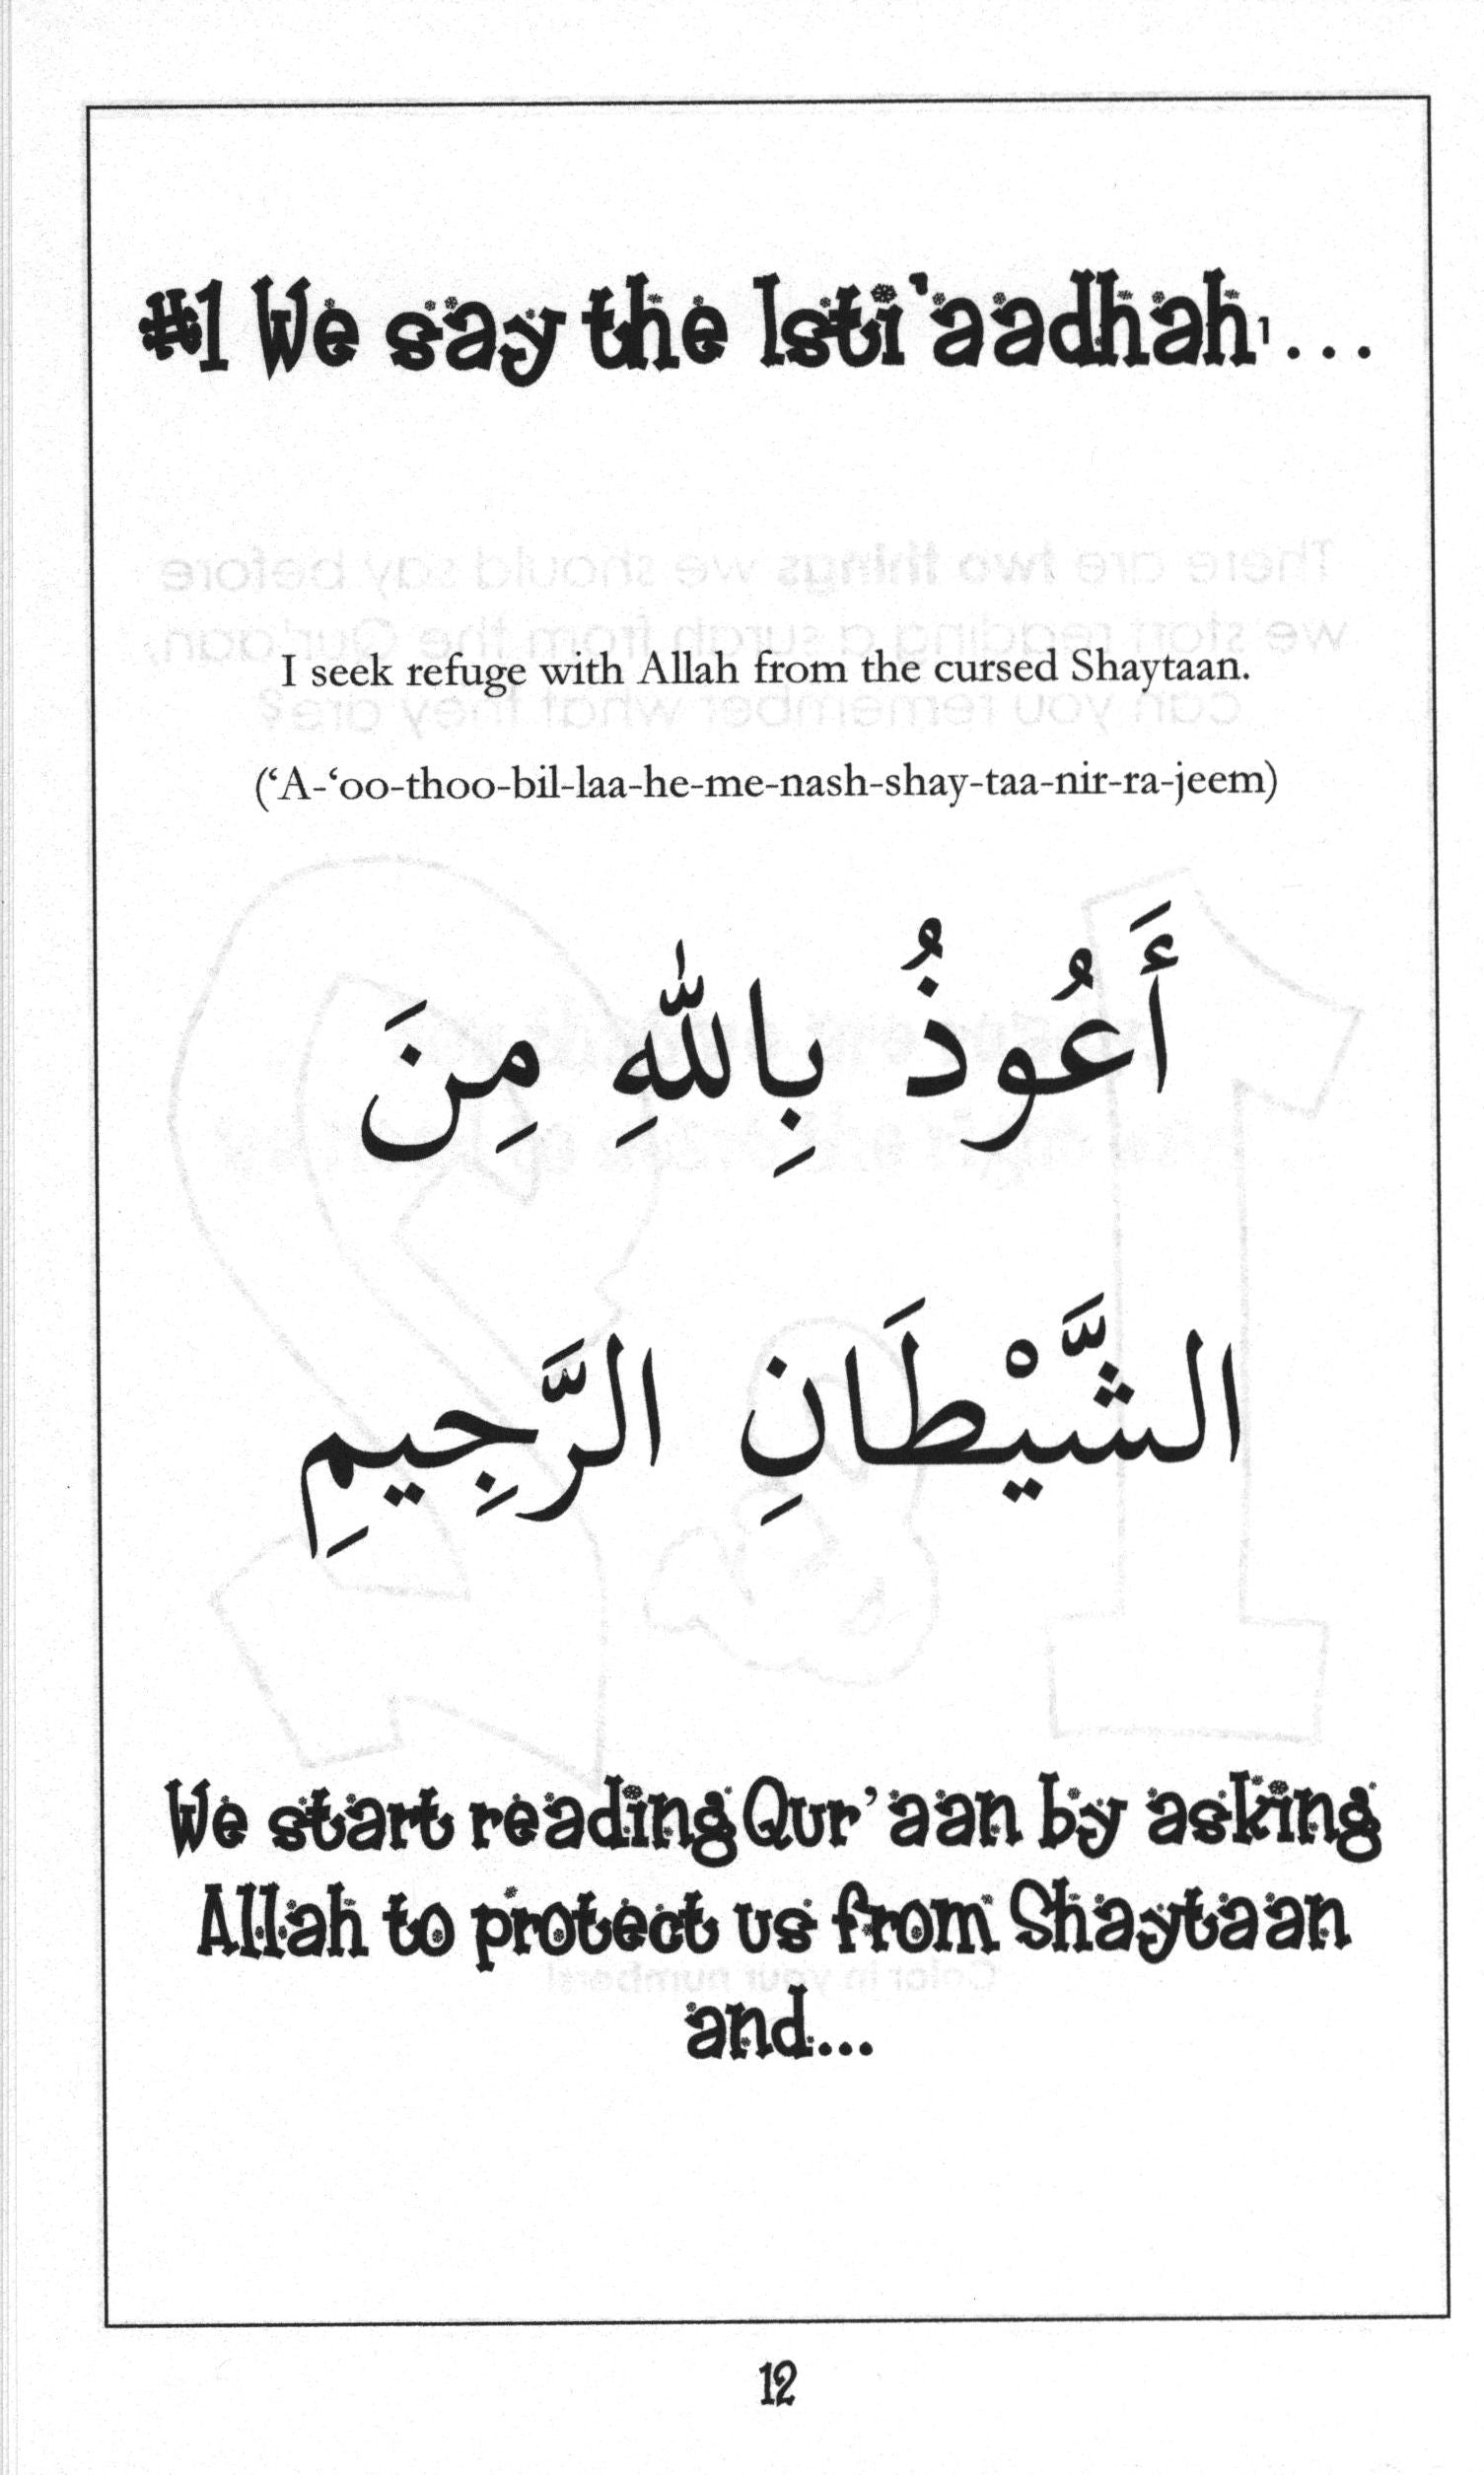 #1 We say the Isti'aadhah¹...
I seek refuge with Allah from the cursed Shaytaan.
(‘A-‘oo-thoo-bil-laa-he-me-nash-shay-taa-nir-ra-jeem)
أَعُوذُ بِاللهِ مِنَ
الشَّيْطَانِ الرَّجِيمِ
We start reading Qur’aan by asking
Allah to protect us from Shaytaan
and...
12